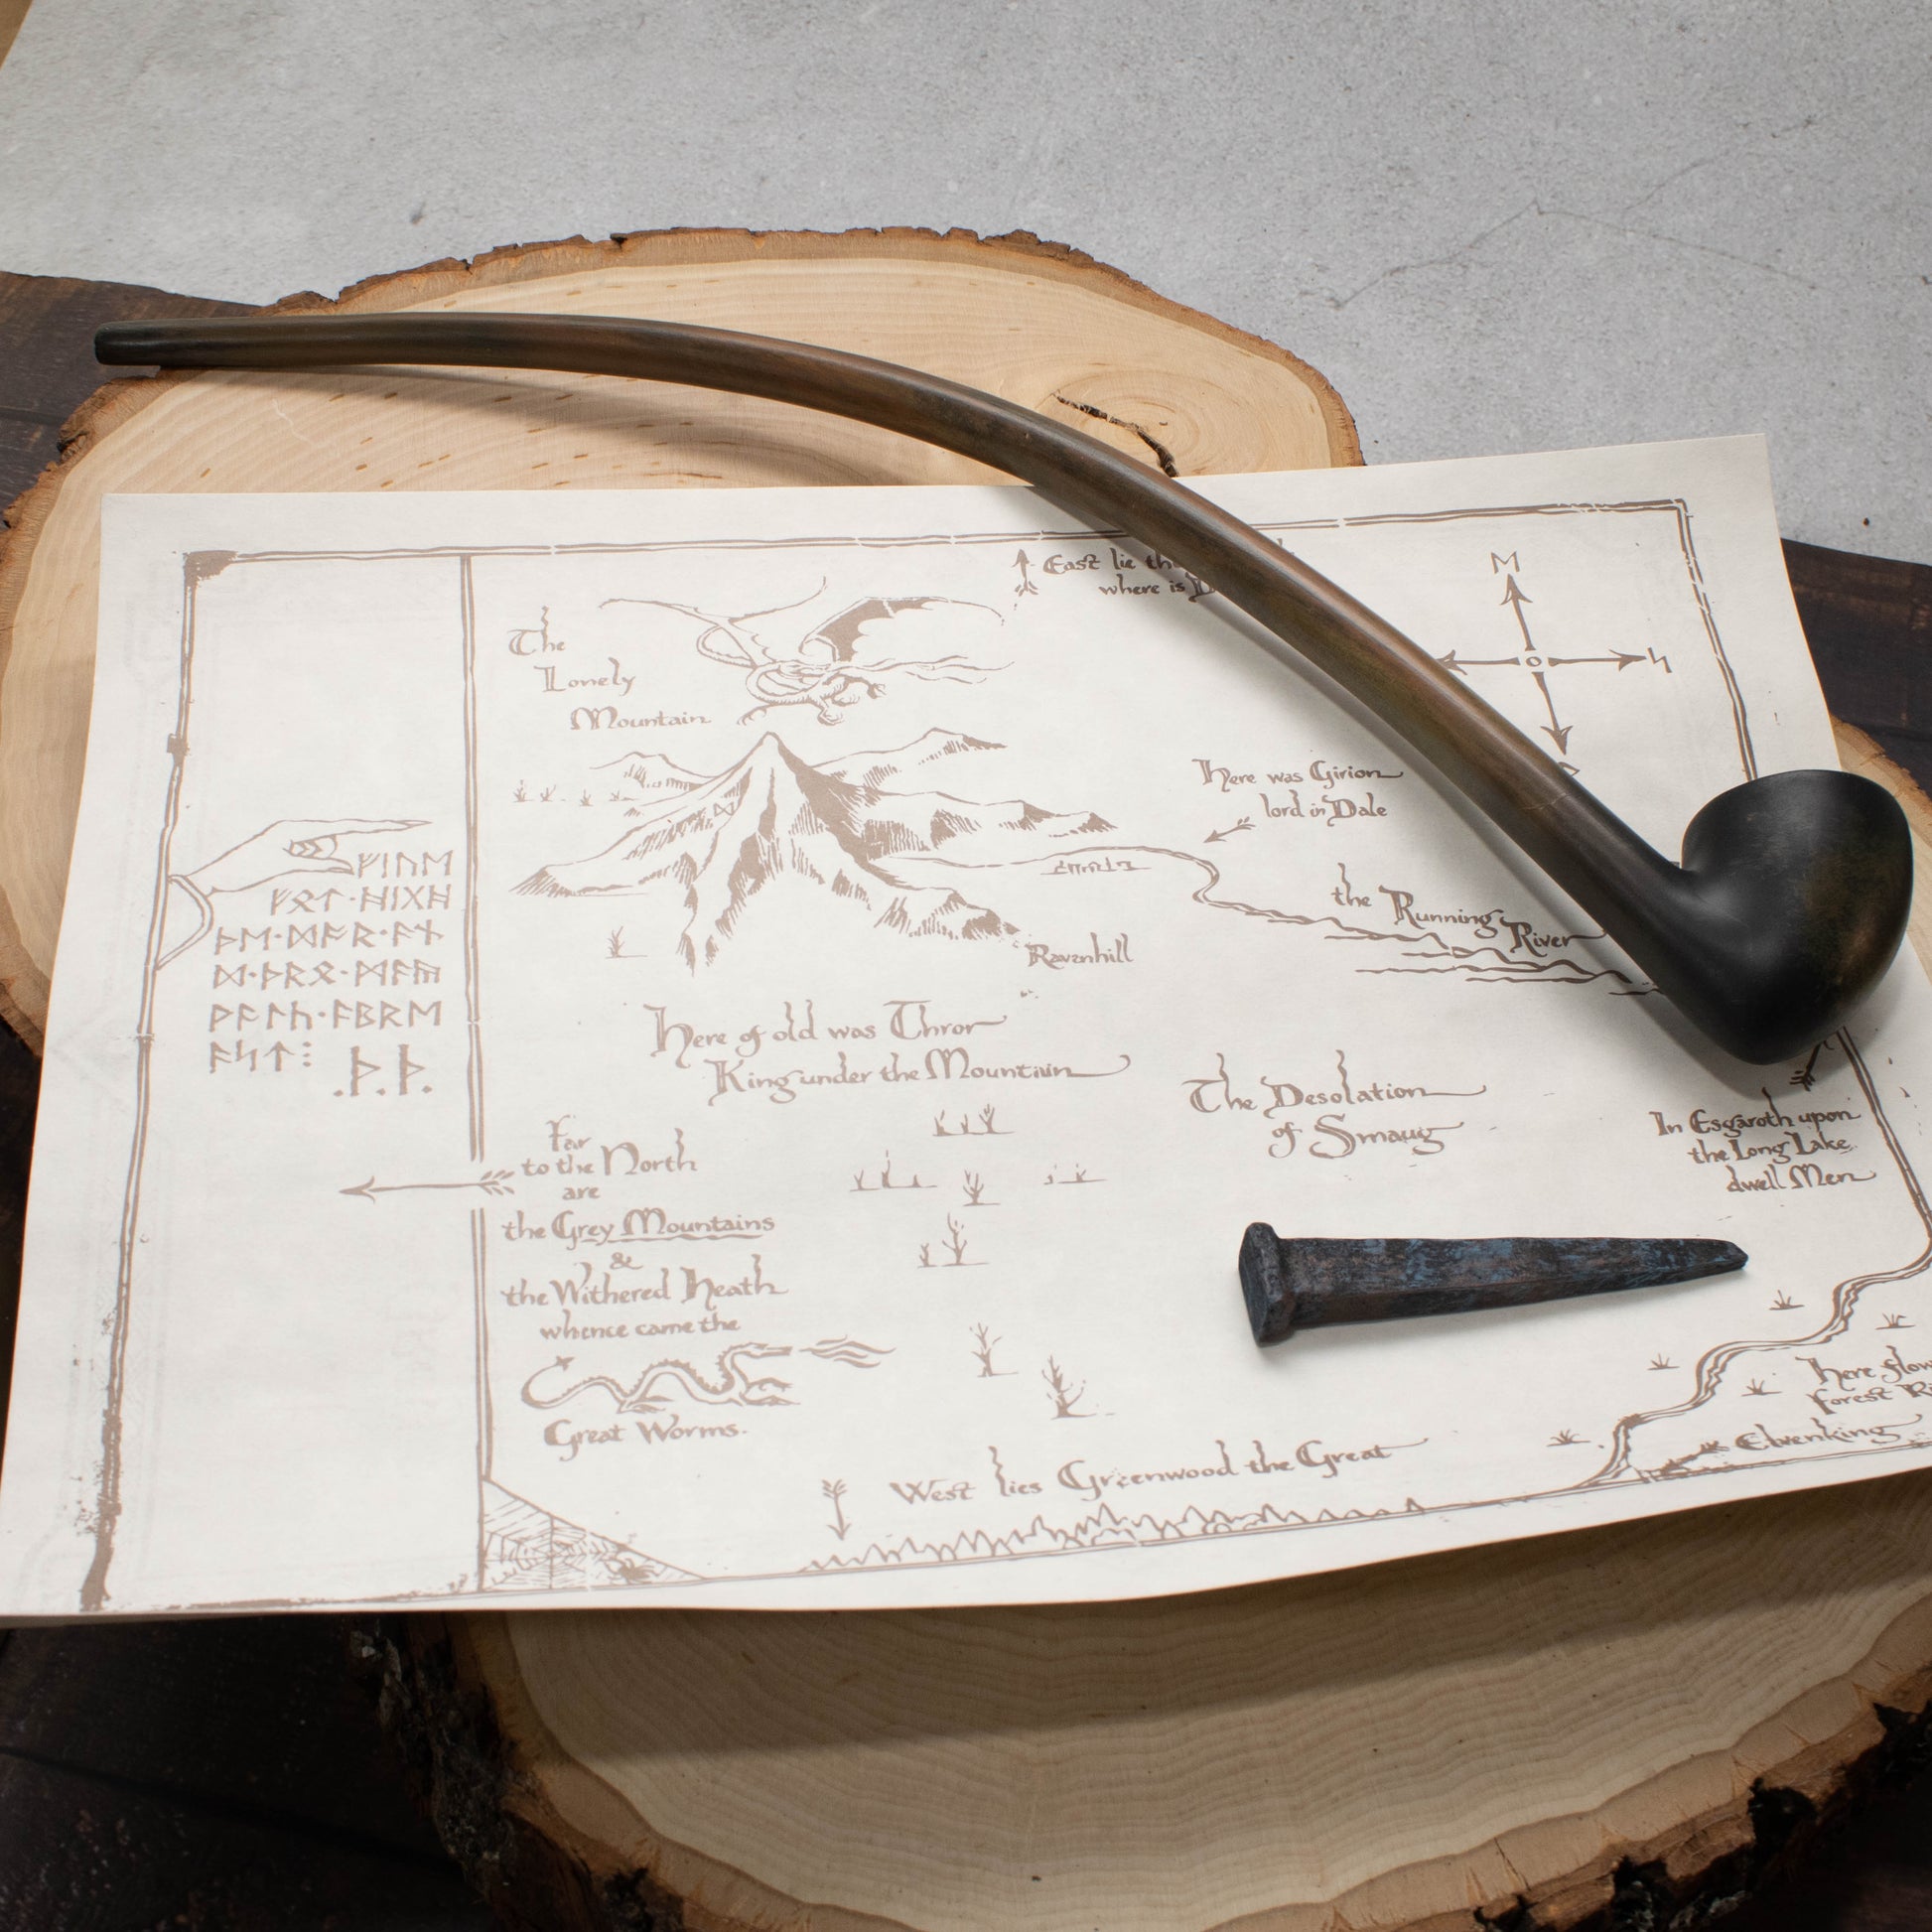 East lie
where is
ᛖ
ᛋ
The
Lonely
Mountain
Here was Girion
lord in Dale
the Running
River
Ravenhill
ᚠᛁᚢᛖ
ᚠᛟᛏ·ᚻᛁᚷᚻ
ᚦᛖ·ᛞᚩᚱ·ᚫᚾ
ᛞ·ᚦᚱᛟ·ᛗᚫᚣ
ᚹᚫᛚᚳ·ᚫᛒᚱᛖ
ᚫᛋᛏ⋮
.ᚦ.ᚦ.
Here of old was Thror
King under the Mountain
The Desolation
of Smaug
In Esgaroth upon
the Long Lake
dwell Men
Far
to the North
are
the Grey Mountains
&
the Withered Heath
whence came the
Great Worms.
West lies Greenwood the Great
Here
Forest
Elvenking